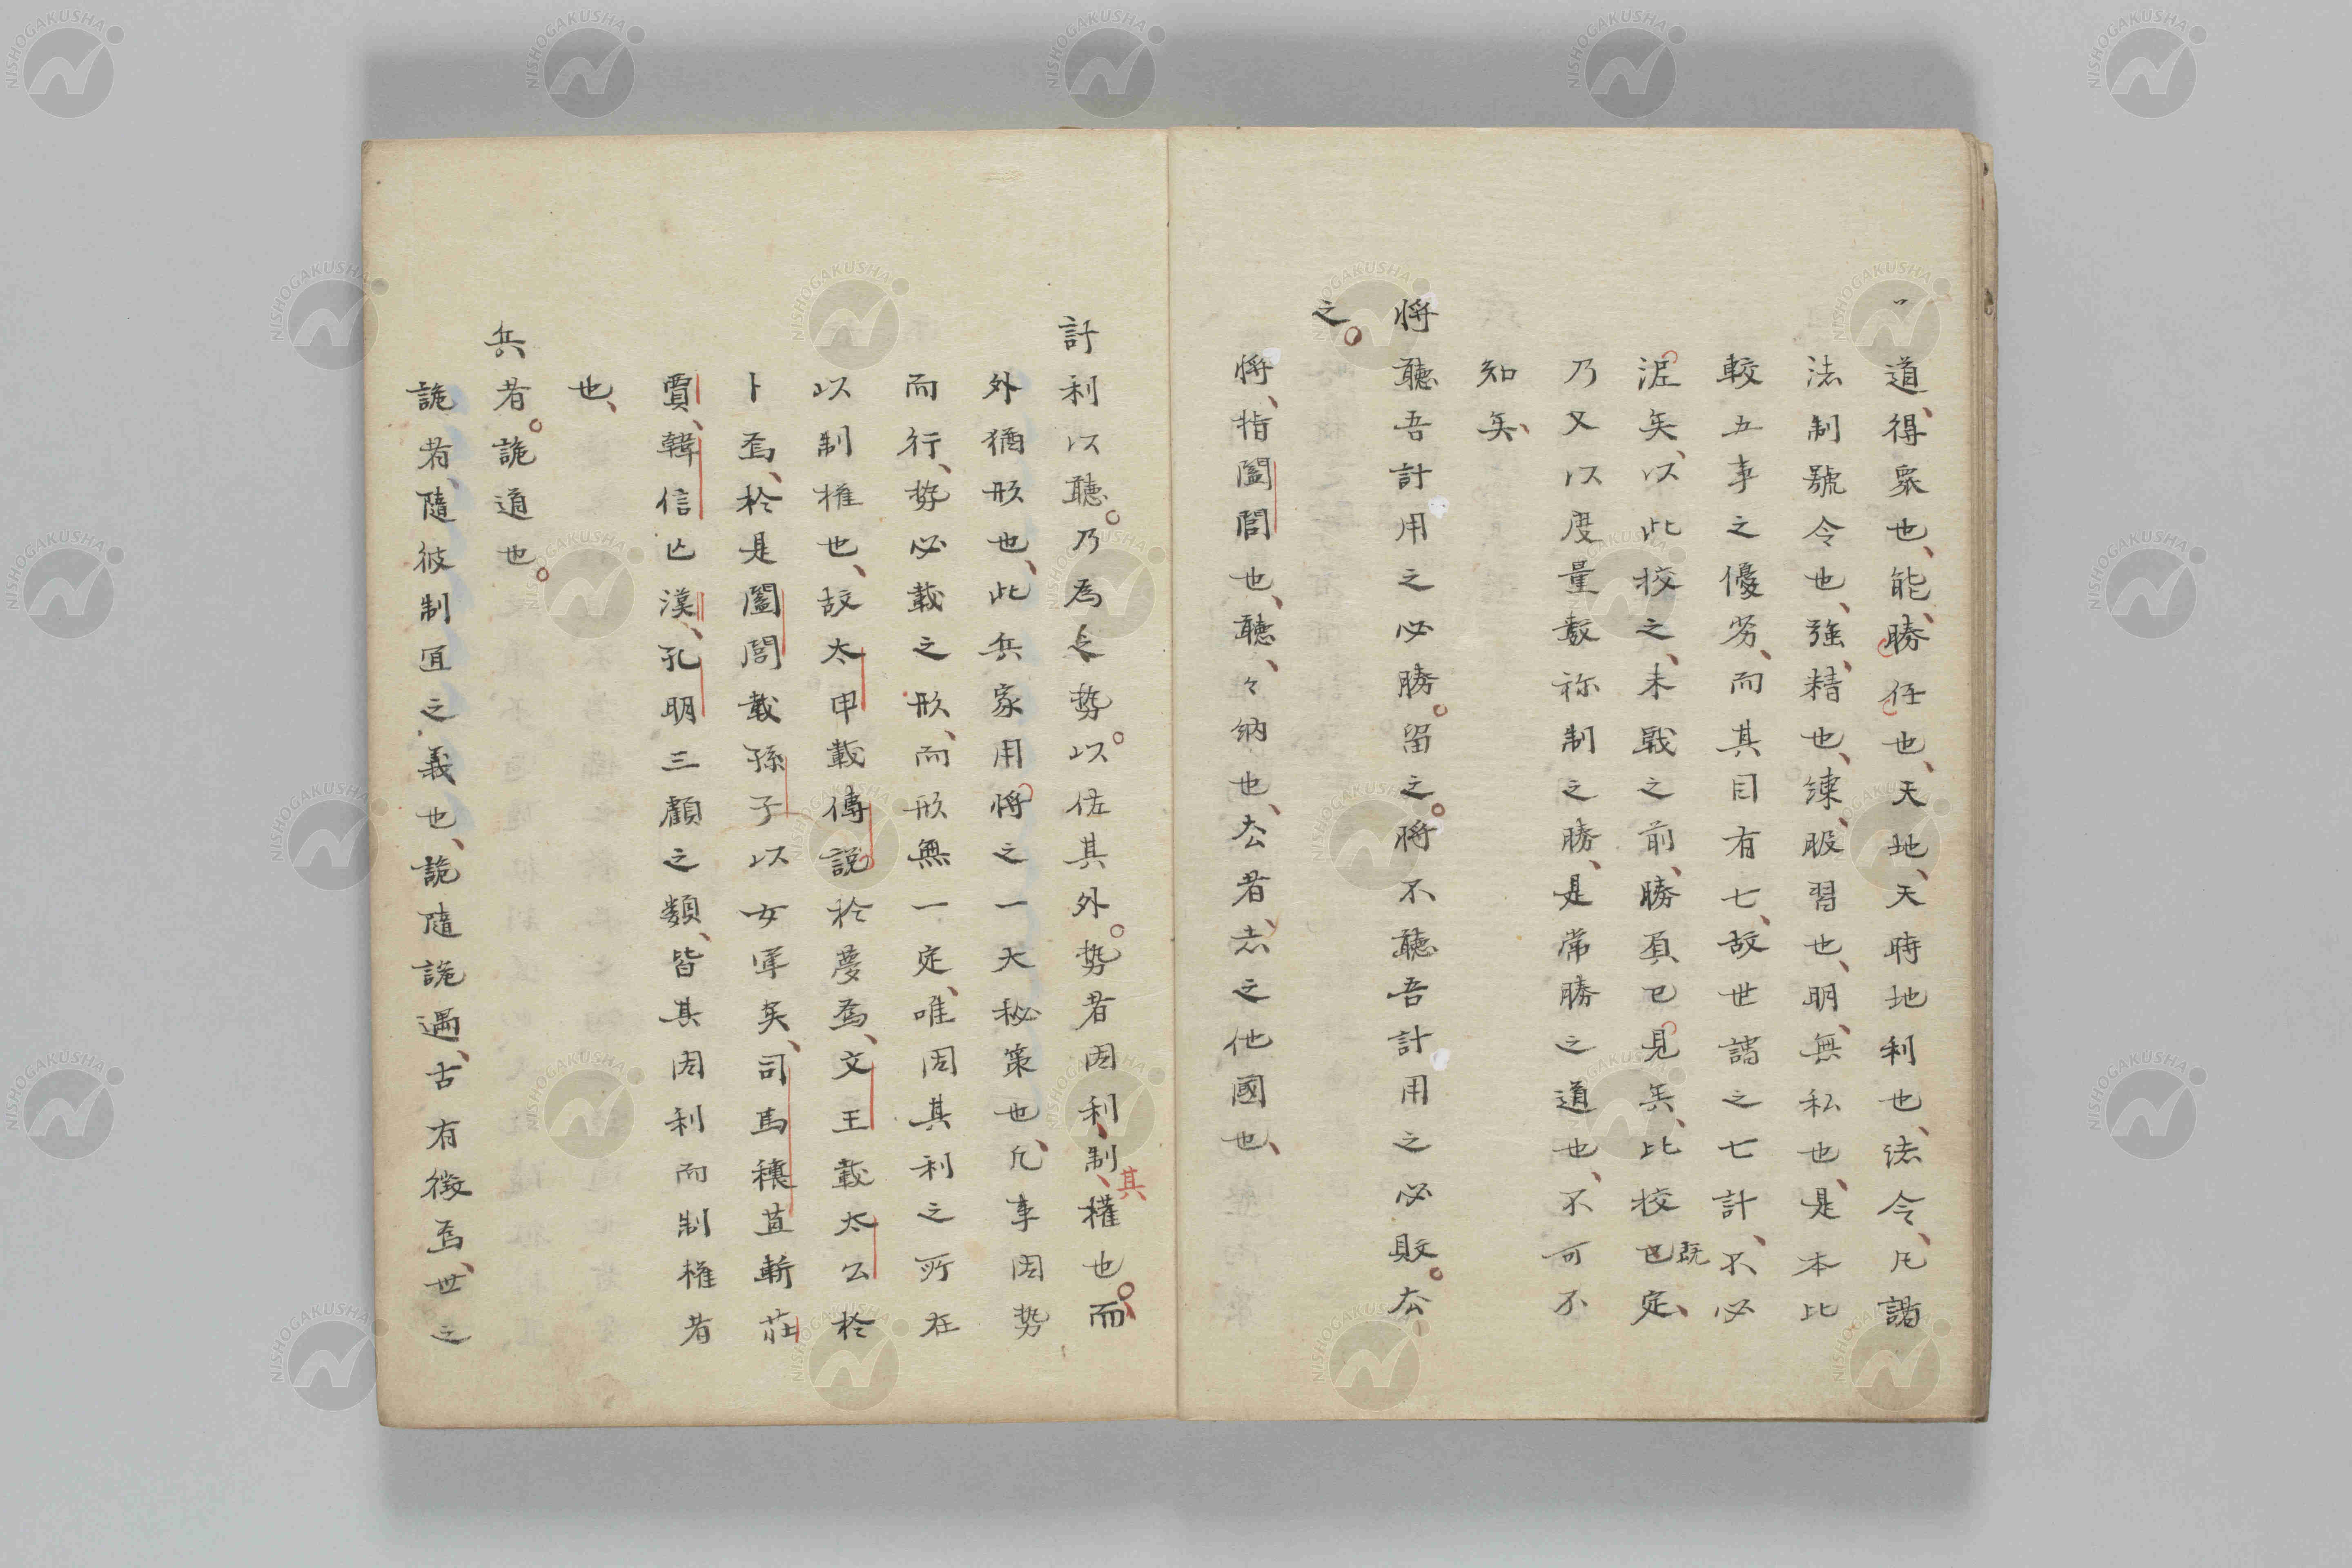 道、得衆也、能、勝任也、天地、天時地利也、法令、凡諸
法制號令也、強、精也、練、服習也、明、無私也、是本比
較五事之優劣、而其目有七、故世謂之七計、不必
泥矣、以此校之、未戰之前、勝負已見矣、比校已既定、
乃又以度量數称制之勝、是常勝之道也、不可不
知矣、
將聽吾計用之必勝。留之。將不聽吾計用之必敗。去
之。
將、指闔閭也、聽、々納也、去者、去之他國也、
計利以聽。乃為之勢。以佐其外。勢者因利、制、其權也。而
外猶形也、此兵家用將之一大秘策也、凡事因勢
而行、勢必載之形、而形無一定、唯因其利之所在
以制権也、故太甲載傳説於夢焉、文王載太公於
卜焉、於是闔閭載孫子以女軍矣、司馬穰苴斬莊
賈、韓信亡漢、孔明三顧之類、皆其因利而制権者
也、
兵者。詭道也。
詭者、隨彼制宜之義也、詭隨詭遇、古有徴焉、世之